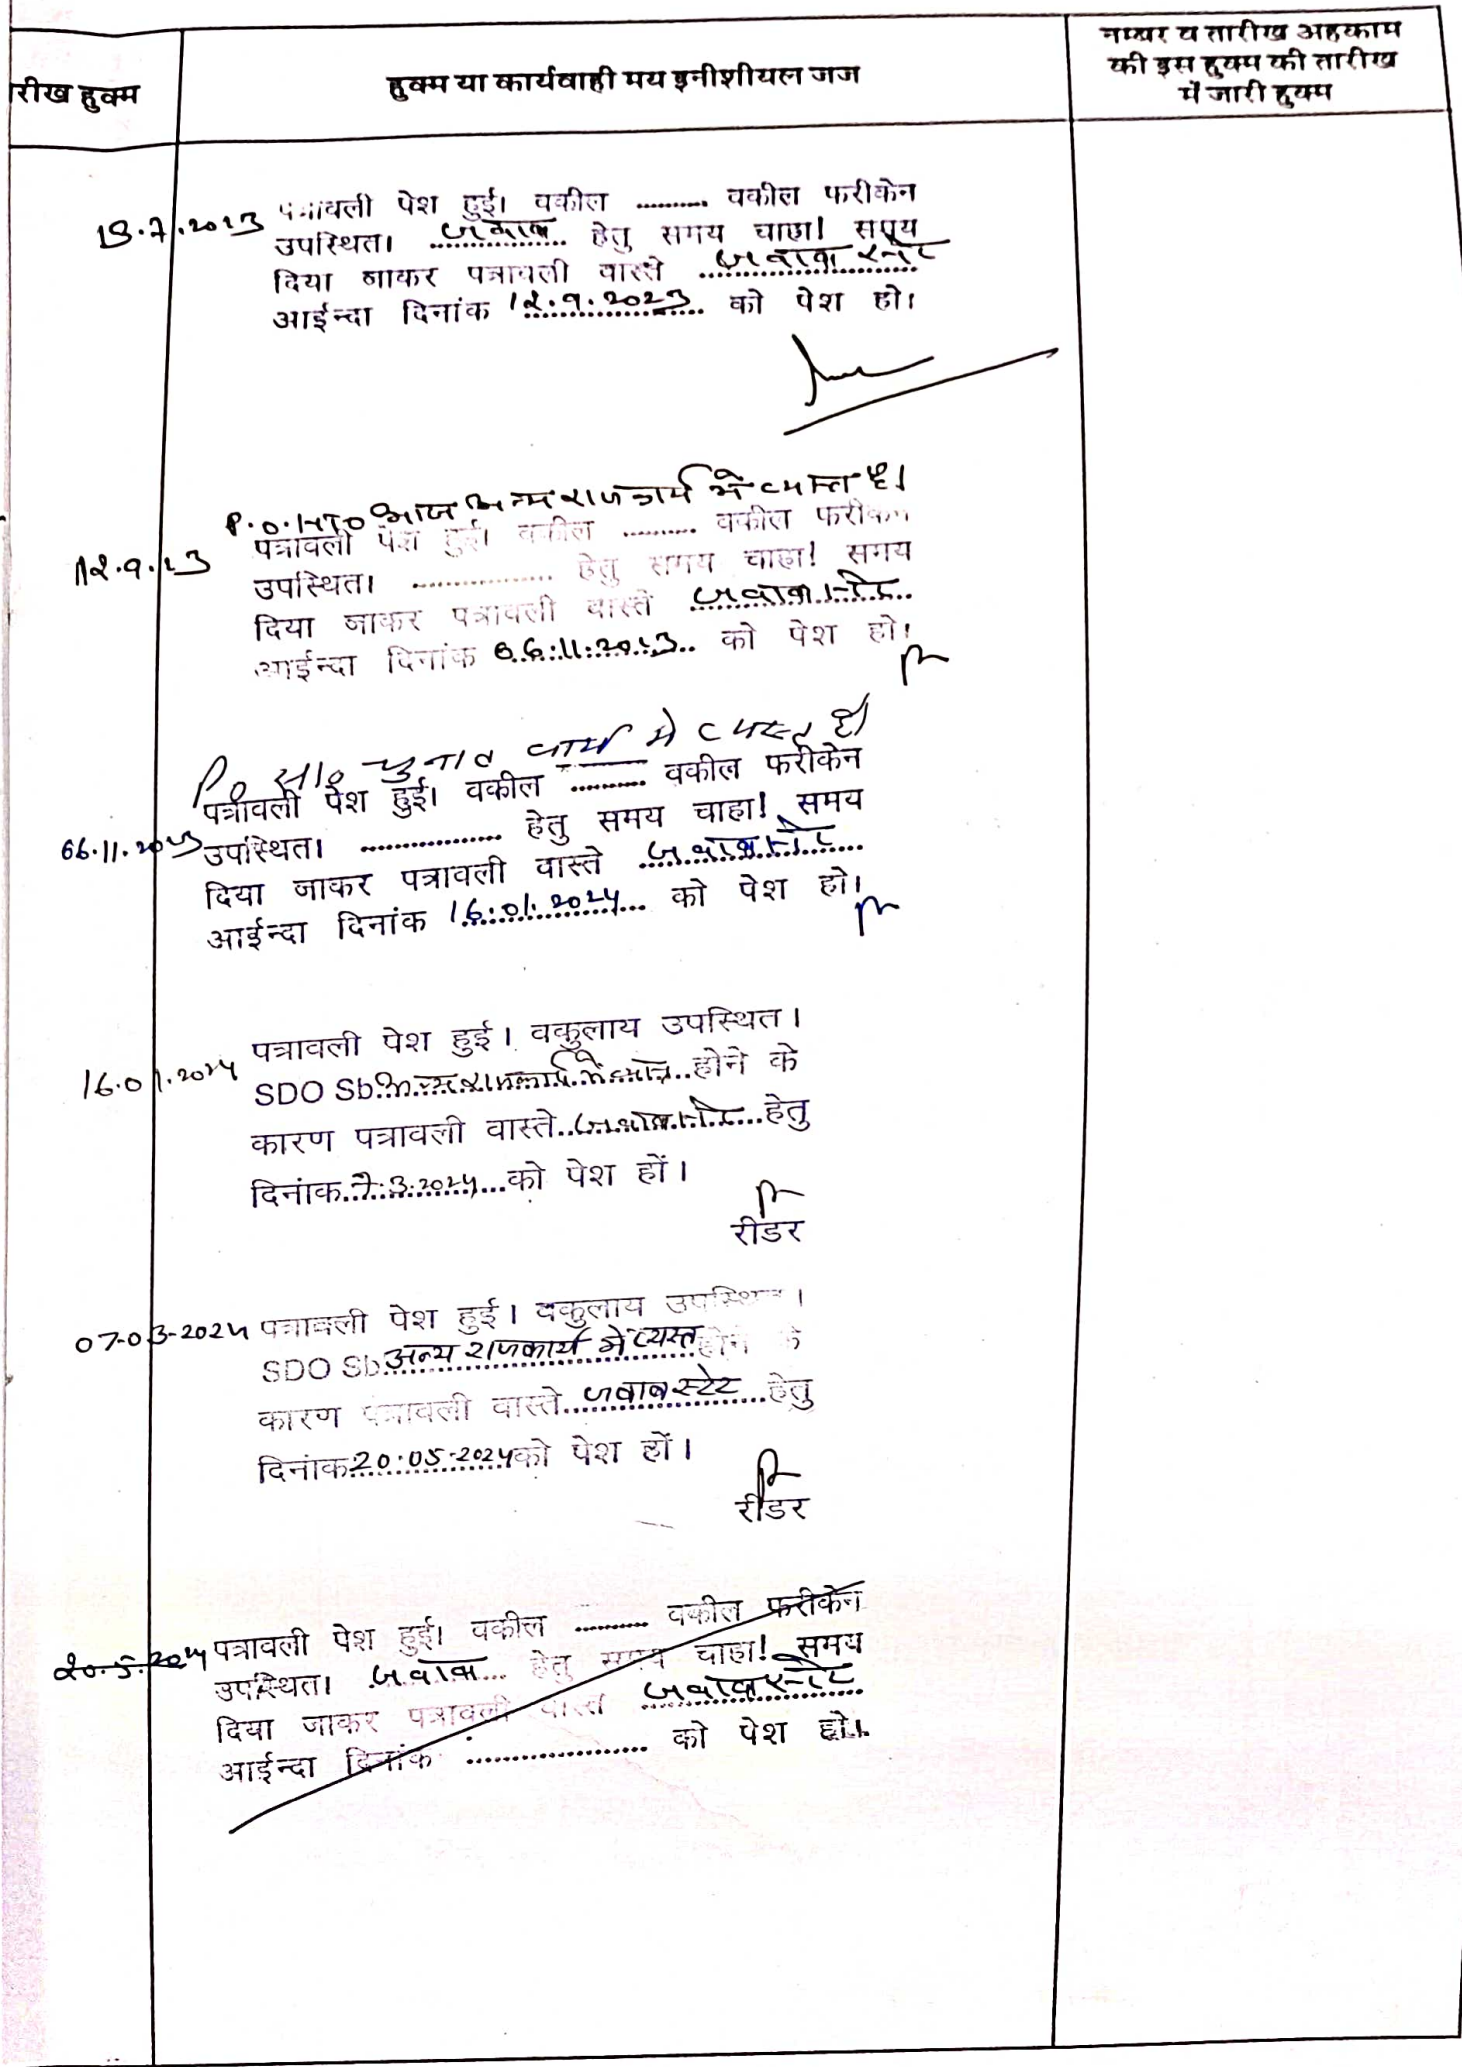 रीख हुक्म
हुक्म या कार्यवाही मय इनीशीयल जज
नम्बर व तारीख अहकाम
की इस हुक्म की तारीख
में जारी हुक्म
19.7.2023
पत्रावली पेश हुई। वकील .......... वकील फरीकेन
उपस्थित। जवाब हेतु समय चाहा! समय
दिया जाकर पत्रावली वास्ते जवाब स्टे
आईन्दा दिनांक 12.9.2023 को पेश हो।
P.O. सा० आज अन्य राजकार्य में व्यस्त है।
12.9.23
पत्रावली पेश हुई। वकील .......... वकील फरीकेन
उपस्थित। .................. हेतु समय चाहा! समय
दिया जाकर पत्रावली वास्ते जवाब स्टे
आईन्दा दिनांक 06.11.2023 को पेश हो।
P.O सा० चुनाव कार्य मे व्यस्त है।
06.11.2023
पत्रावली पेश हुई। वकील .......... वकील फरीकेन
उपस्थित। .................. हेतु समय चाहा! समय
दिया जाकर पत्रावली वास्ते जवाब स्टे
आईन्दा दिनांक 16.01.2024 को पेश हो।
16.01.2024
पत्रावली पेश हुई। वकुलाय उपस्थित।
SDO Sb. अन्य राजकार्य में व्यस्त होने के
कारण पत्रावली वास्ते जवाब स्टे हेतु
दिनांक 7.3.2024 को पेश हों।
रीडर
07-03-2024
पत्रावली पेश हुई। वकुलाय उपस्थित।
SDO Sb. अन्य राजकार्य मे व्यस्त होने के
कारण पत्रावली वास्ते जवाब स्टेट हेतु
दिनांक 20.05.2024 को पेश हों।
रीडर
20.5.2024
पत्रावली पेश हुई। वकील .......... वकील फरीकेन
उपस्थित। जवाब हेतु समय चाहा! समय
दिया जाकर पत्रावली वास्ते जवाब स्टे
आईन्दा दिनांक .................. को पेश हो।